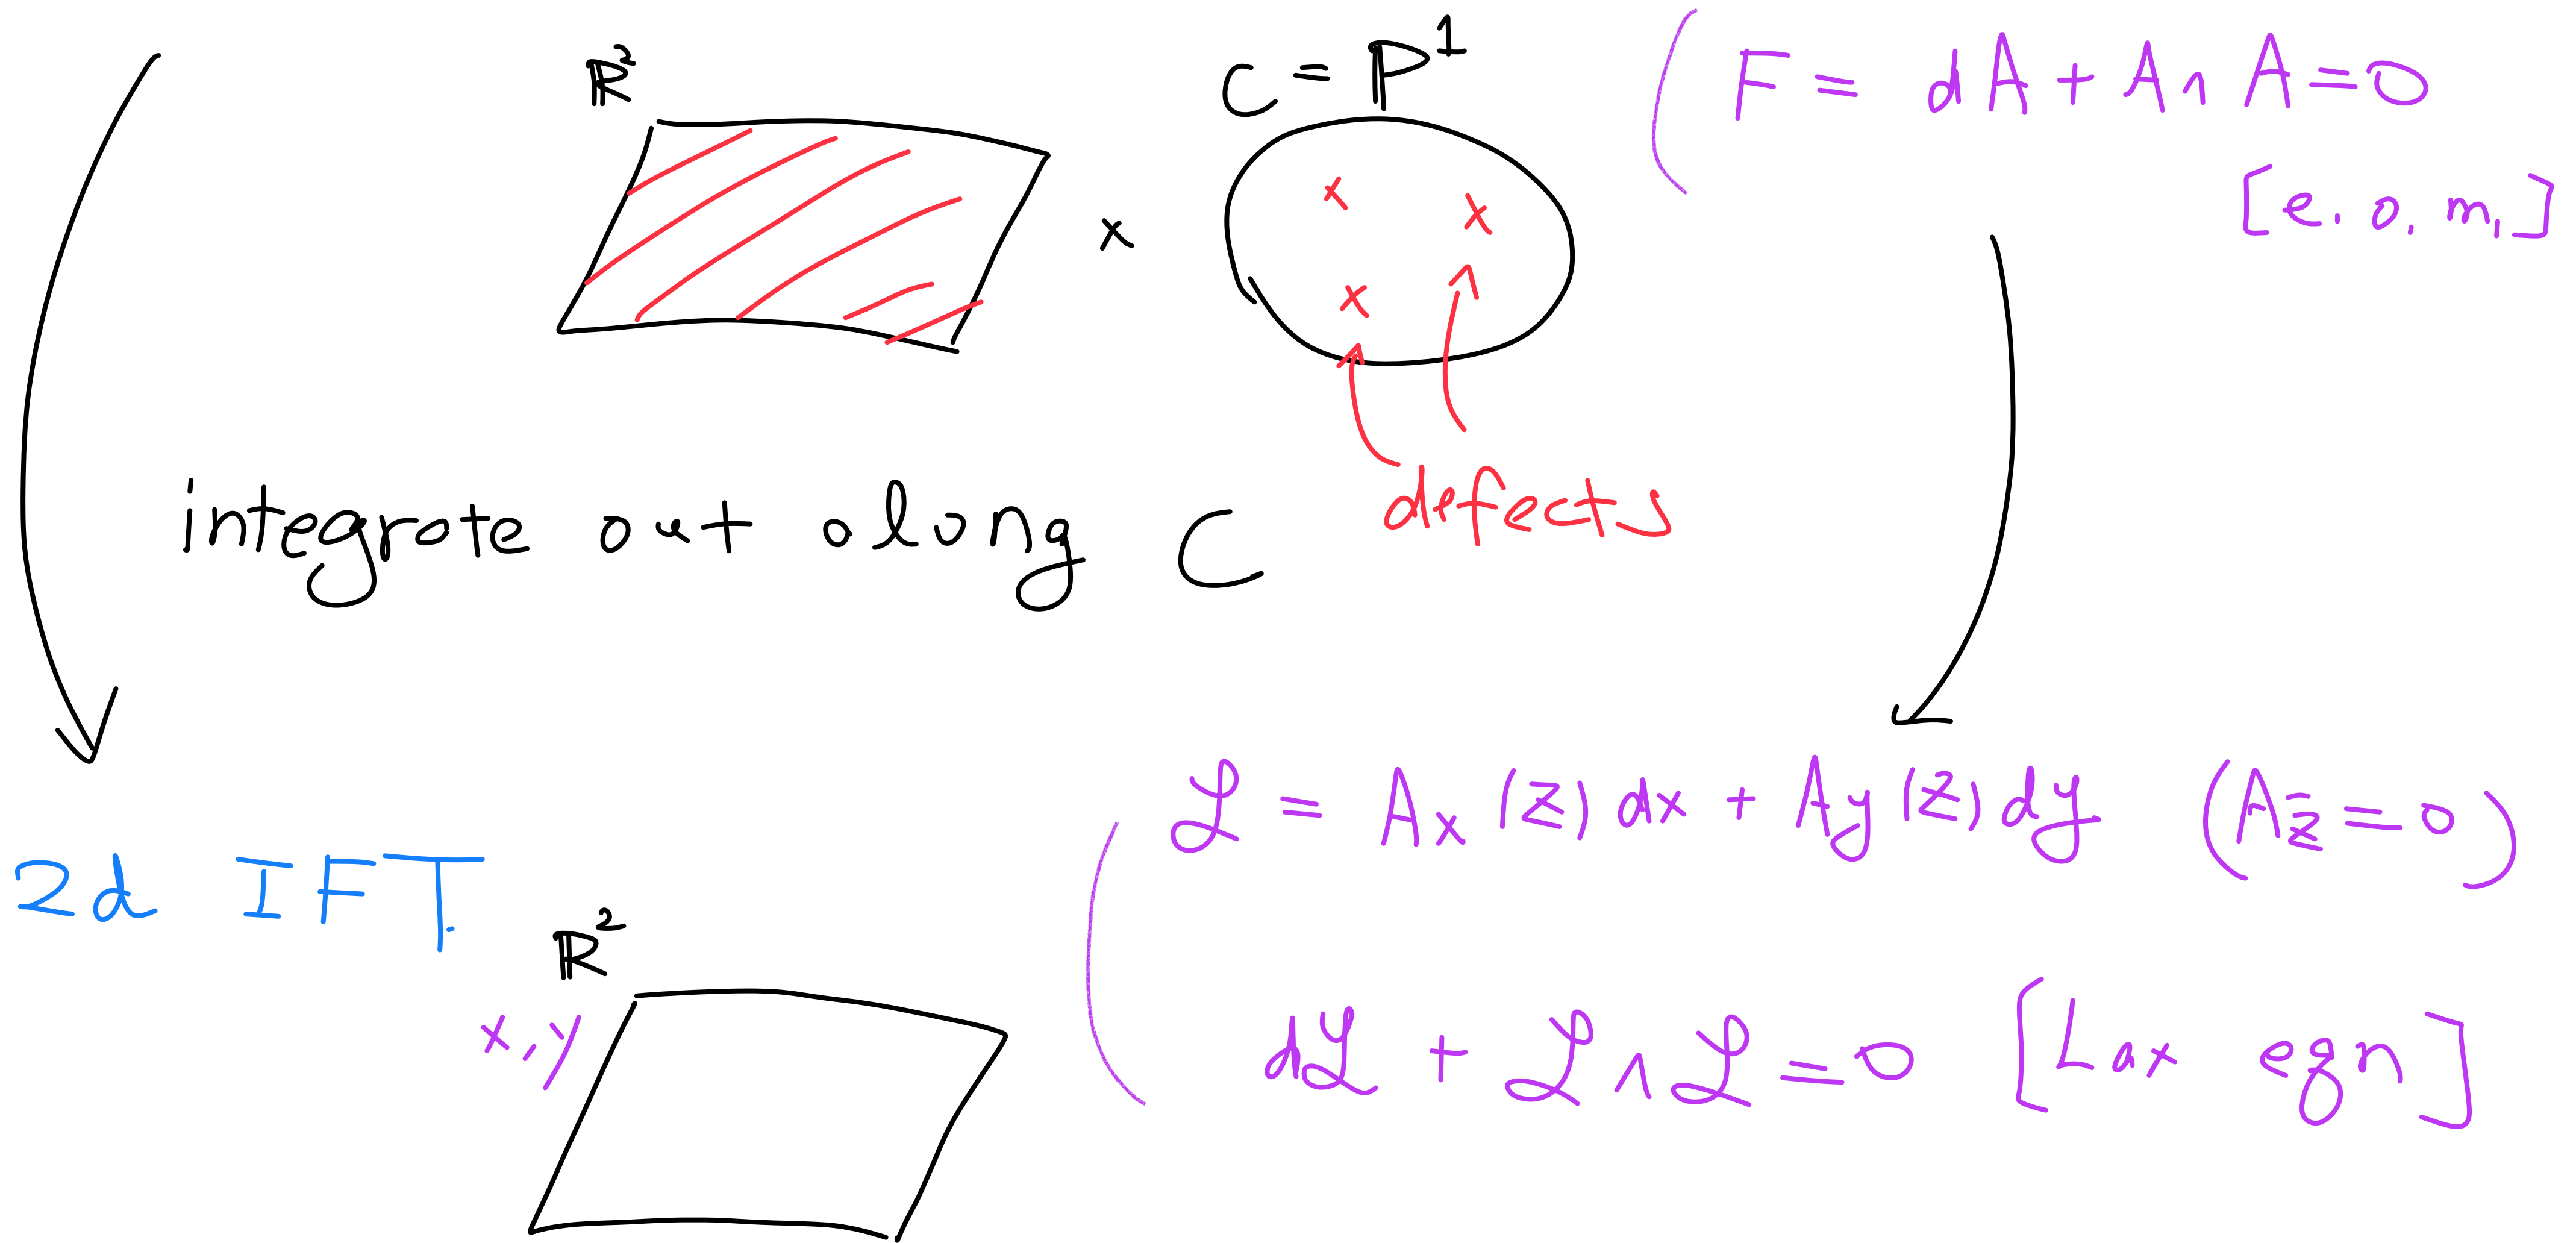 ℝ² × C = ℙ¹
F = dA + A ∧ A = 0
[e. o. m.]
defects
integrate out along C
2d IFT.
ℒ = Aₓ(z)dx + A_y(z)dy (A_z̄ = 0)
ℝ²
x, y
dℒ + ℒ ∧ ℒ = 0 [Lax eqn]